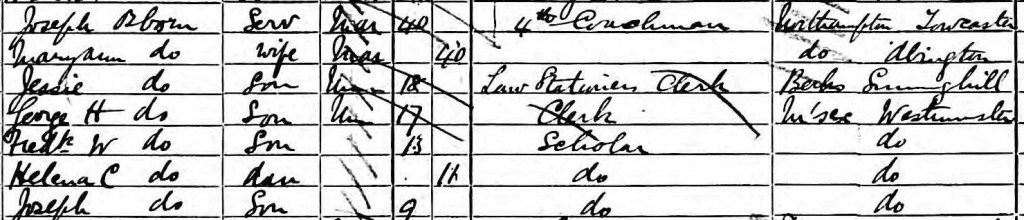 Joseph Osborn Serv Mar 40 4th Coachman Northampton Towcester
Maryann do Wife Mar 40 do Abington
Jessie do Son Un 18 Law Stationers Clerk Berks Sunninghill
George H do Son Un 17 Clerk M'sex Westminster
Fredk W do Son 13 Scholar do
Helena C do dau 11 do do
Joseph do Son 9 do do